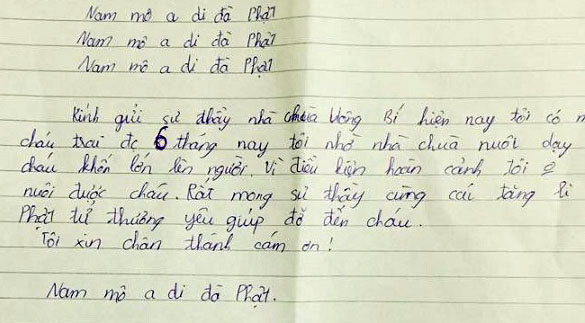 Nam mô a di đà Phật
Nam mô a di đà Phật
Nam mô a di đà Phật
Kính gửi sư thầy nhà chùa Uông Bí hiện nay tôi có
cháu trai đc 6 tháng nay tôi nhờ nhà chùa nuôi dạy
cháu khôn lớn lên người. Vì điều kiện hoàn cảnh tôi
nuôi được cháu. Rất mong sư thầy cùng các tăng li
Phật tử thương yêu giúp đỡ đến cháu.
Tôi xin chân thành cảm ơn!
Nam mô a di đà Phật.